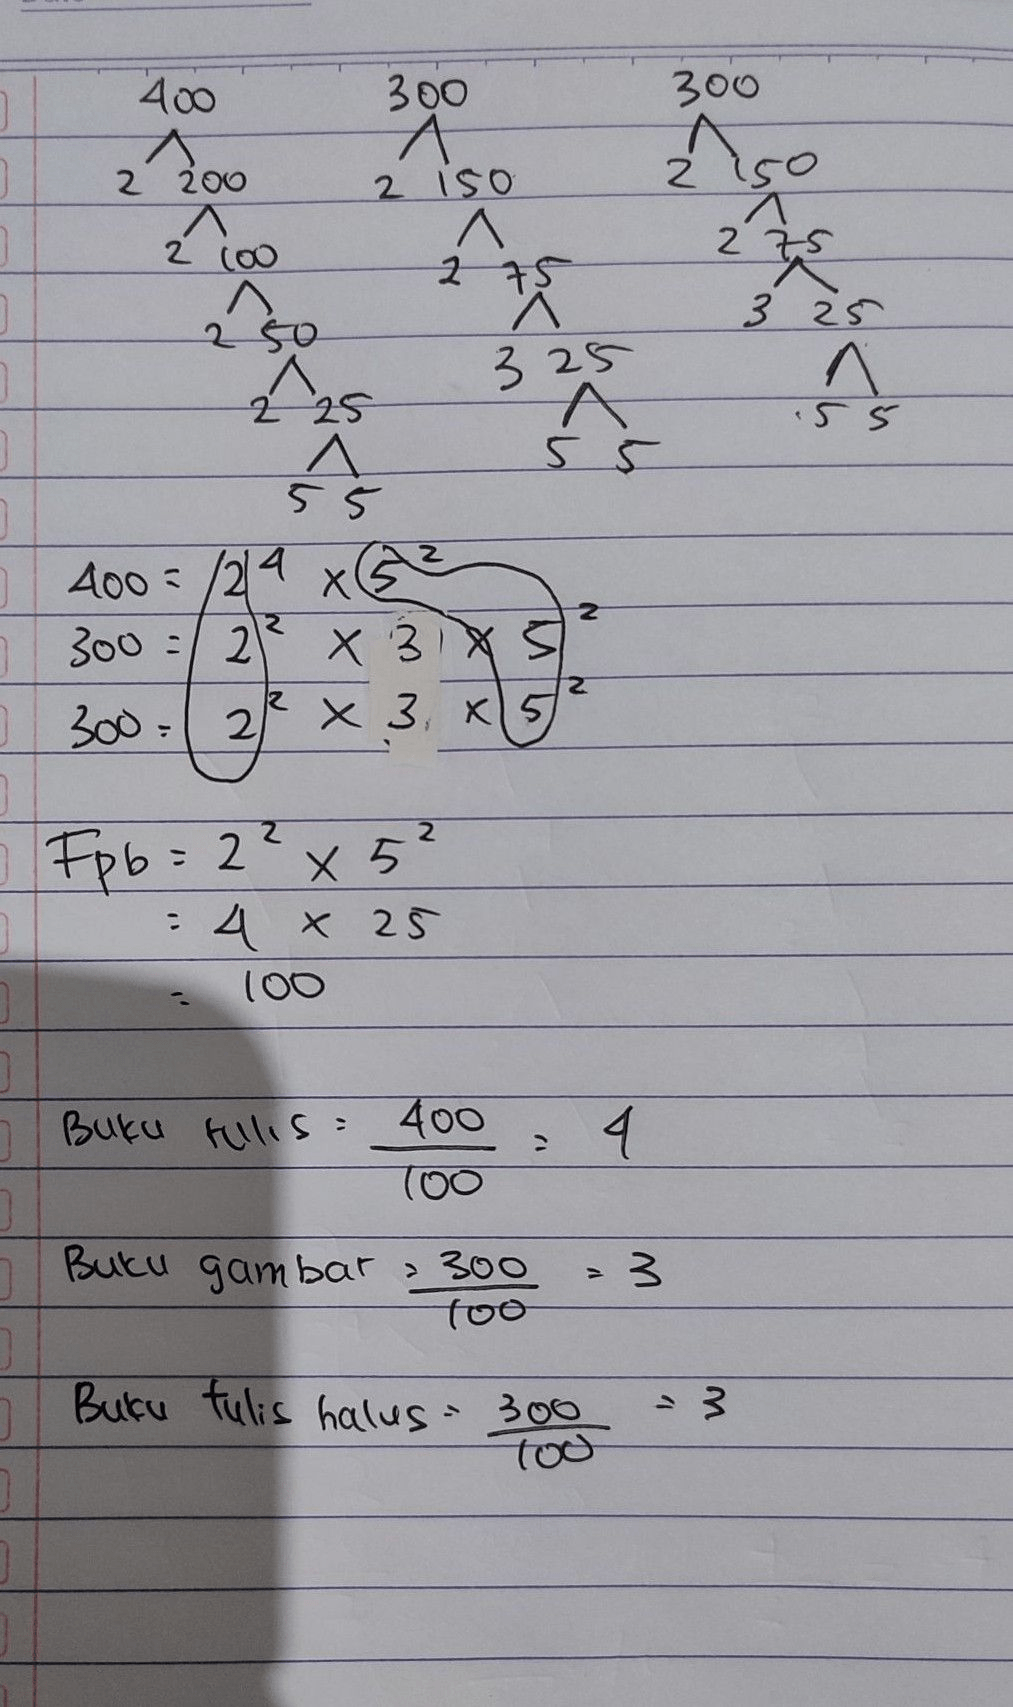 400 300 300
2 200 2 150 2 150
2 100 2 75 2 75
2 50 3 25 3 25
2 25 5 5 5 5
5 5
400 = 2⁴ × 5²
300 = 2² × 3 × 5²
300 = 2² × 3 × 5²
Fpb = 2² × 5²
= 4 × 25
= 100
Buku tulis = 400/100 = 4
Buku gambar = 300/100 = 3
Buku tulis halus = 300/100 = 3